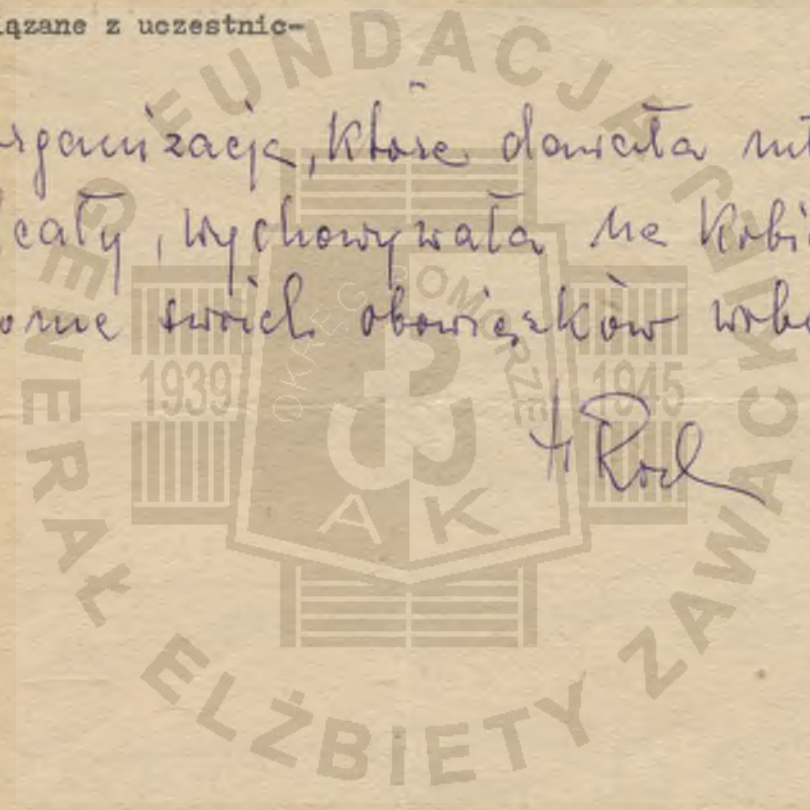 iązane z uczestnic-
organizacja, które dawała
cały, wychowywała na Kobi
ome swoich obowiązków wobe
H Roch
FUNDACJA GENERAŁ ELŻBIETY ZAWACKIEJ
OKRĘG POMORZE
1939 1945
AK